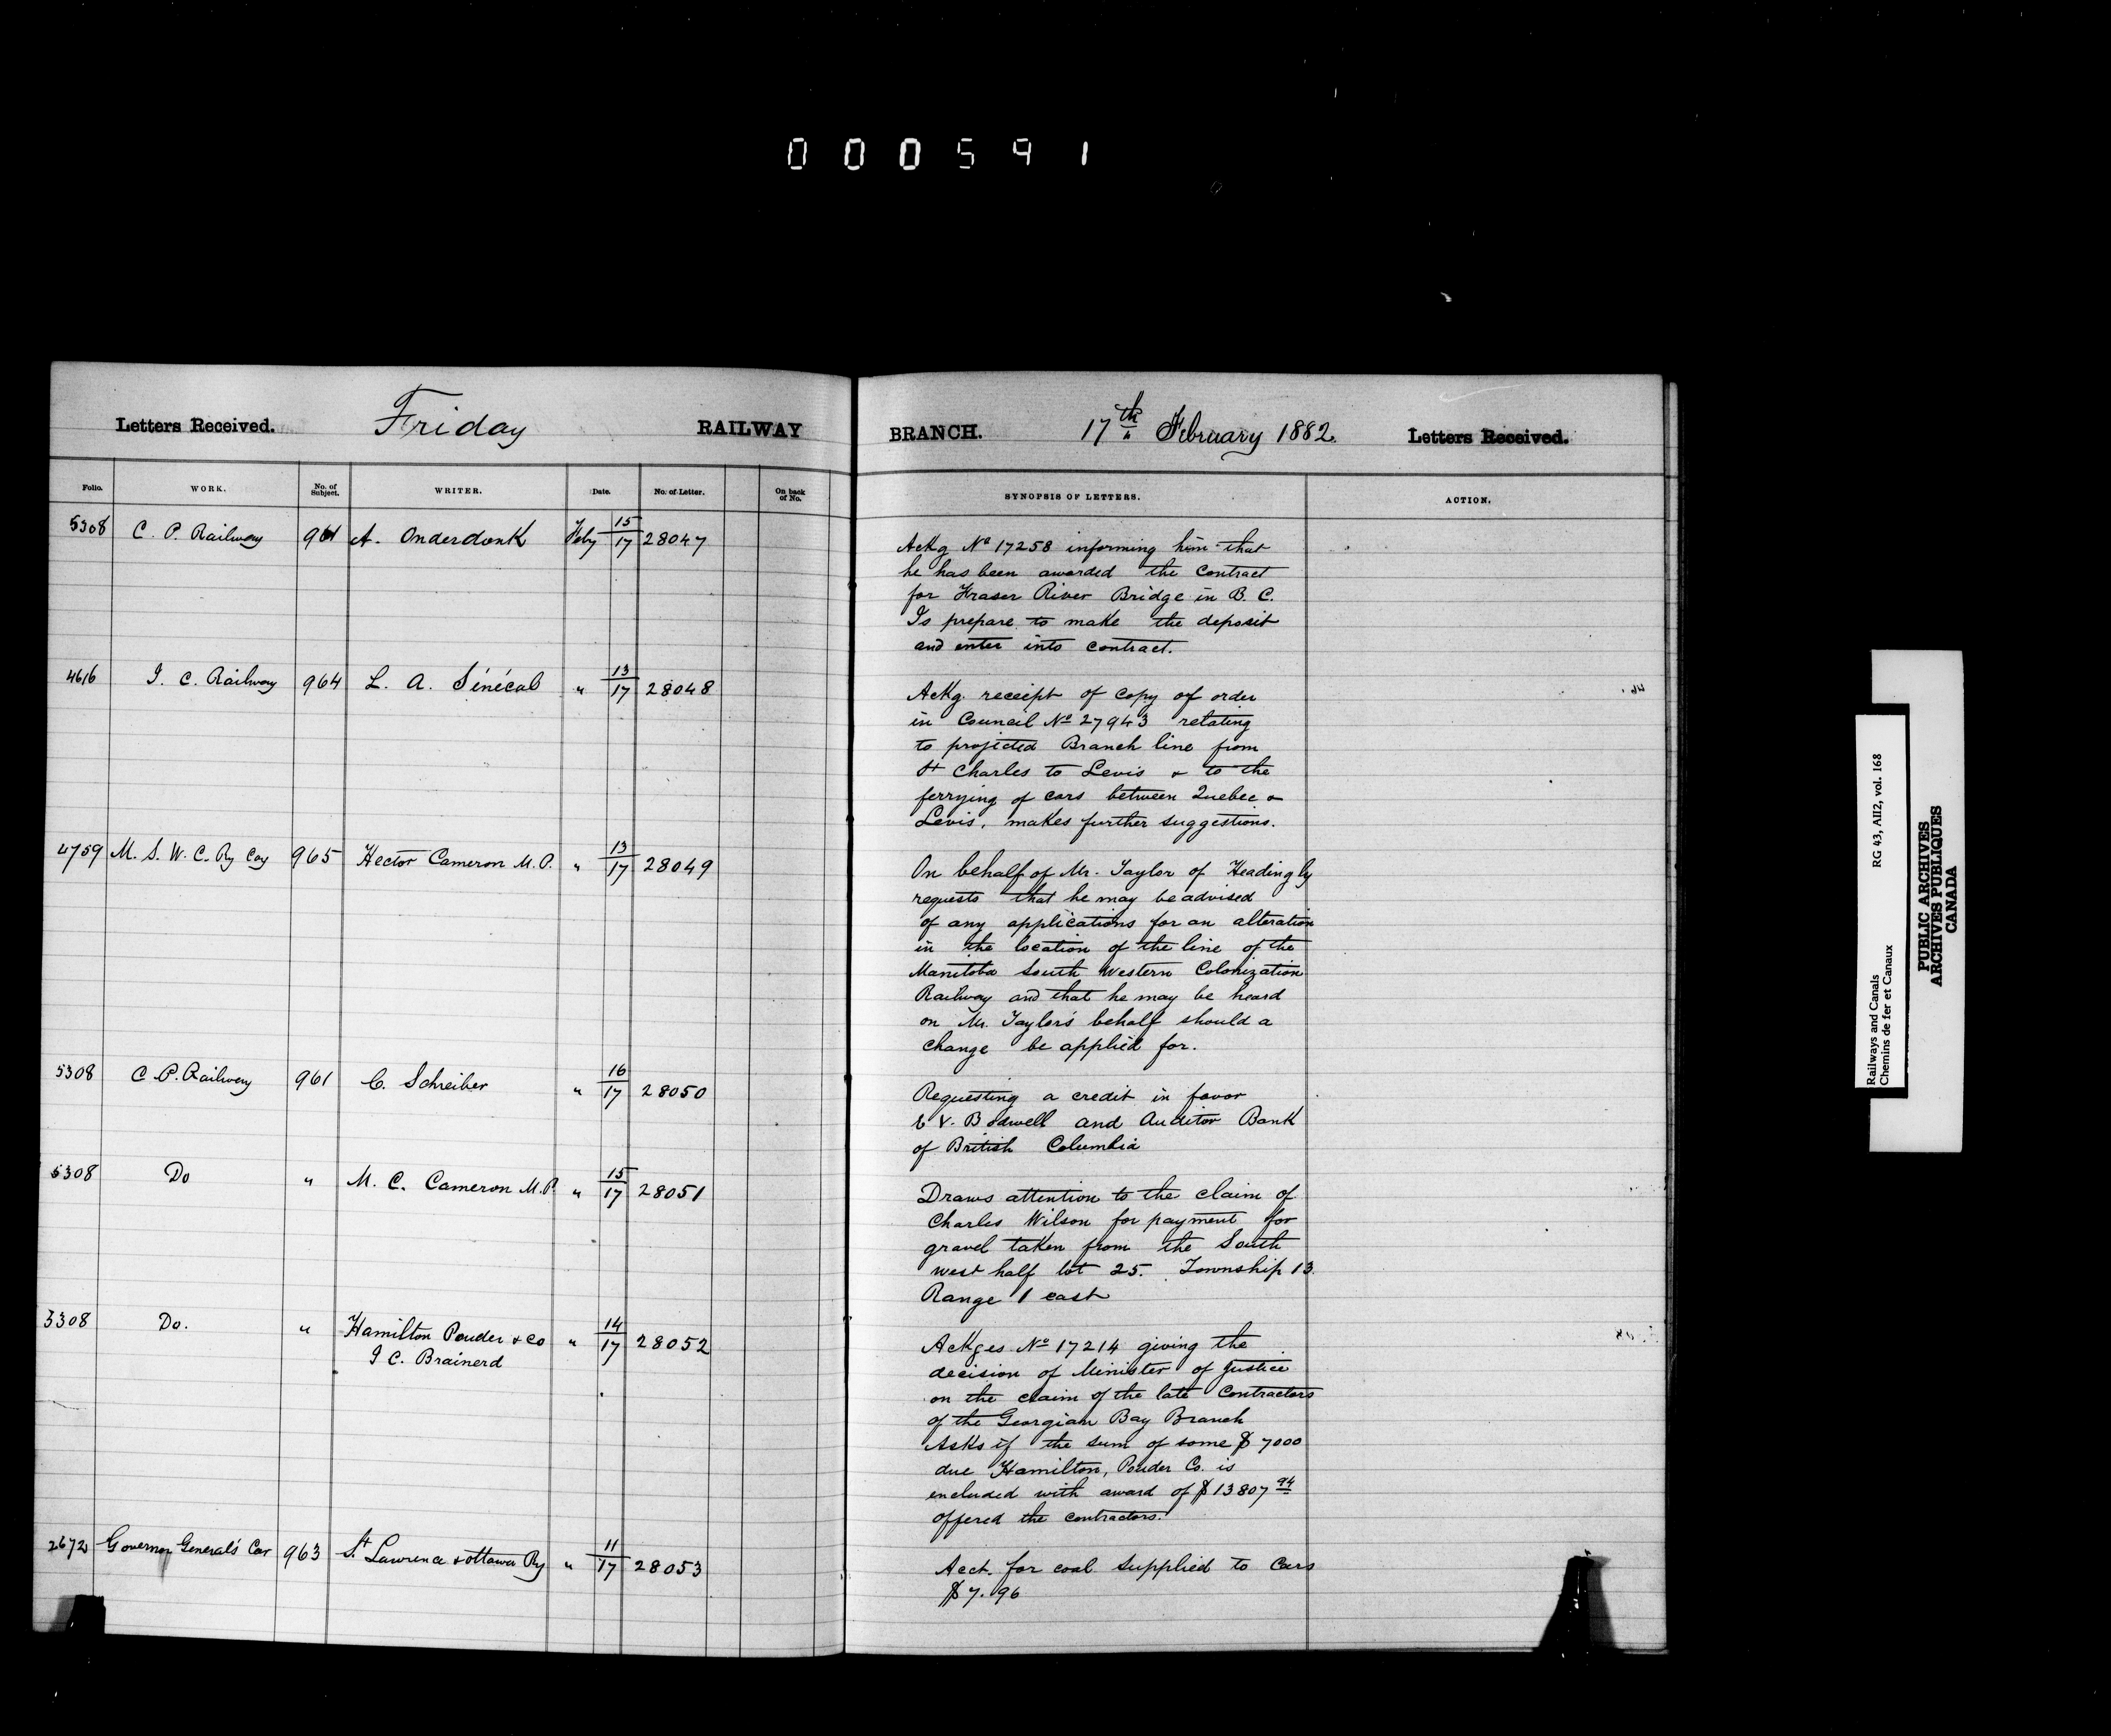 000591
Letters Received. Friday RAILWAY BRANCH. 17th February 1882. Letters Received.
Folio. WORK. No. of Subject. WRITER. Date. No. of Letter. On back of No. SYNOPSIS OF LETTERS. ACTION.
5308 C. P. Railway 961 A. Onderdonk Feby 15/17 28047
Ackg No 17258 informing him that
he has been awarded the contract
for Fraser River Bridge in B. C.
Is prepare to make the deposit
and enter into contract.
4616 I. C. Railway 964 L. A. Sénécal " 13/17 28048
Ackg. receipt of copy of order
in Council No 27943 relating
to projected Branch line from
St Charles to Levis & to the
ferrying of cars between Quebec &
Levis, makes further suggestions.
4759 M. S. W. C. Ry Coy 965 Hector Cameron M. P. " 13/17 28049
On behalf of Mr. Taylor of Headingly
requests that he may be advised
of any applications for an alteration
in the location of the line of the
Manitoba South Western Colonization
Railway and that he may be heard
on Mr. Taylor's behalf should a
change be applied for.
5308 C. P. Railway 961 C. Schreiber " 16/17 28050
Requesting a credit in favor
V. Bodwell and Auditor Bank
of British Columbia
5308 Do " M. C. Cameron M. P. " 15/17 28051
Draws attention to the claim of
Charles Wilson for payment for
gravel taken from the South
west half lot 25. Township 13.
Range 1 east
5308 Do. " Hamilton Pouder & Co " 14/17 28052
J C. Brainerd
Ackges No 17214 giving the
decision of Minister of Justice
on the claim of the late Contractors
of the Georgian Bay Branch
Asks if the sum of some $7000
due Hamilton, Pouder Co. is
included with award of $13807 94
offered the contractors.
2672 Governor General's Car 963 St Lawrence & Ottawa Ry " 11/17 28053
Acct. for coal supplied to Cars
$7.96
Railways and Canals RG 43, AII2, vol. 168
Chemins de fer et Canaux
PUBLIC ARCHIVES
ARCHIVES PUBLIQUES
CANADA